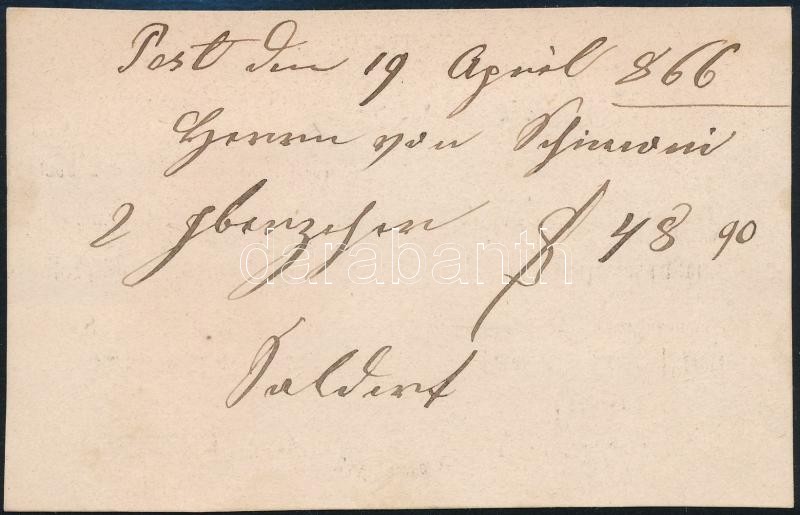 Pest den 19 April 866
Herrn von Schimoni
2 Überzieher f 48 90
darabanth
Saldirt